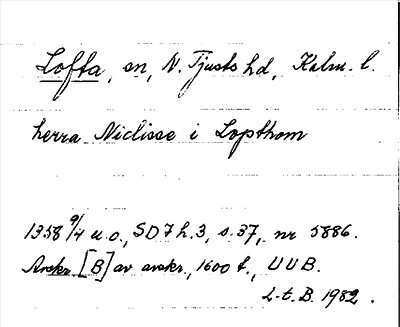 Lofta, sn, N. Tjusts hd, Kalm. l.
herra Niclisse i Lopthom
1358 9/4 u.o., SD 7 h.3, s.37, nr 5886.
Avskr. [B] av avskr., 1600 t., UUB.
L-t. B. 1982.